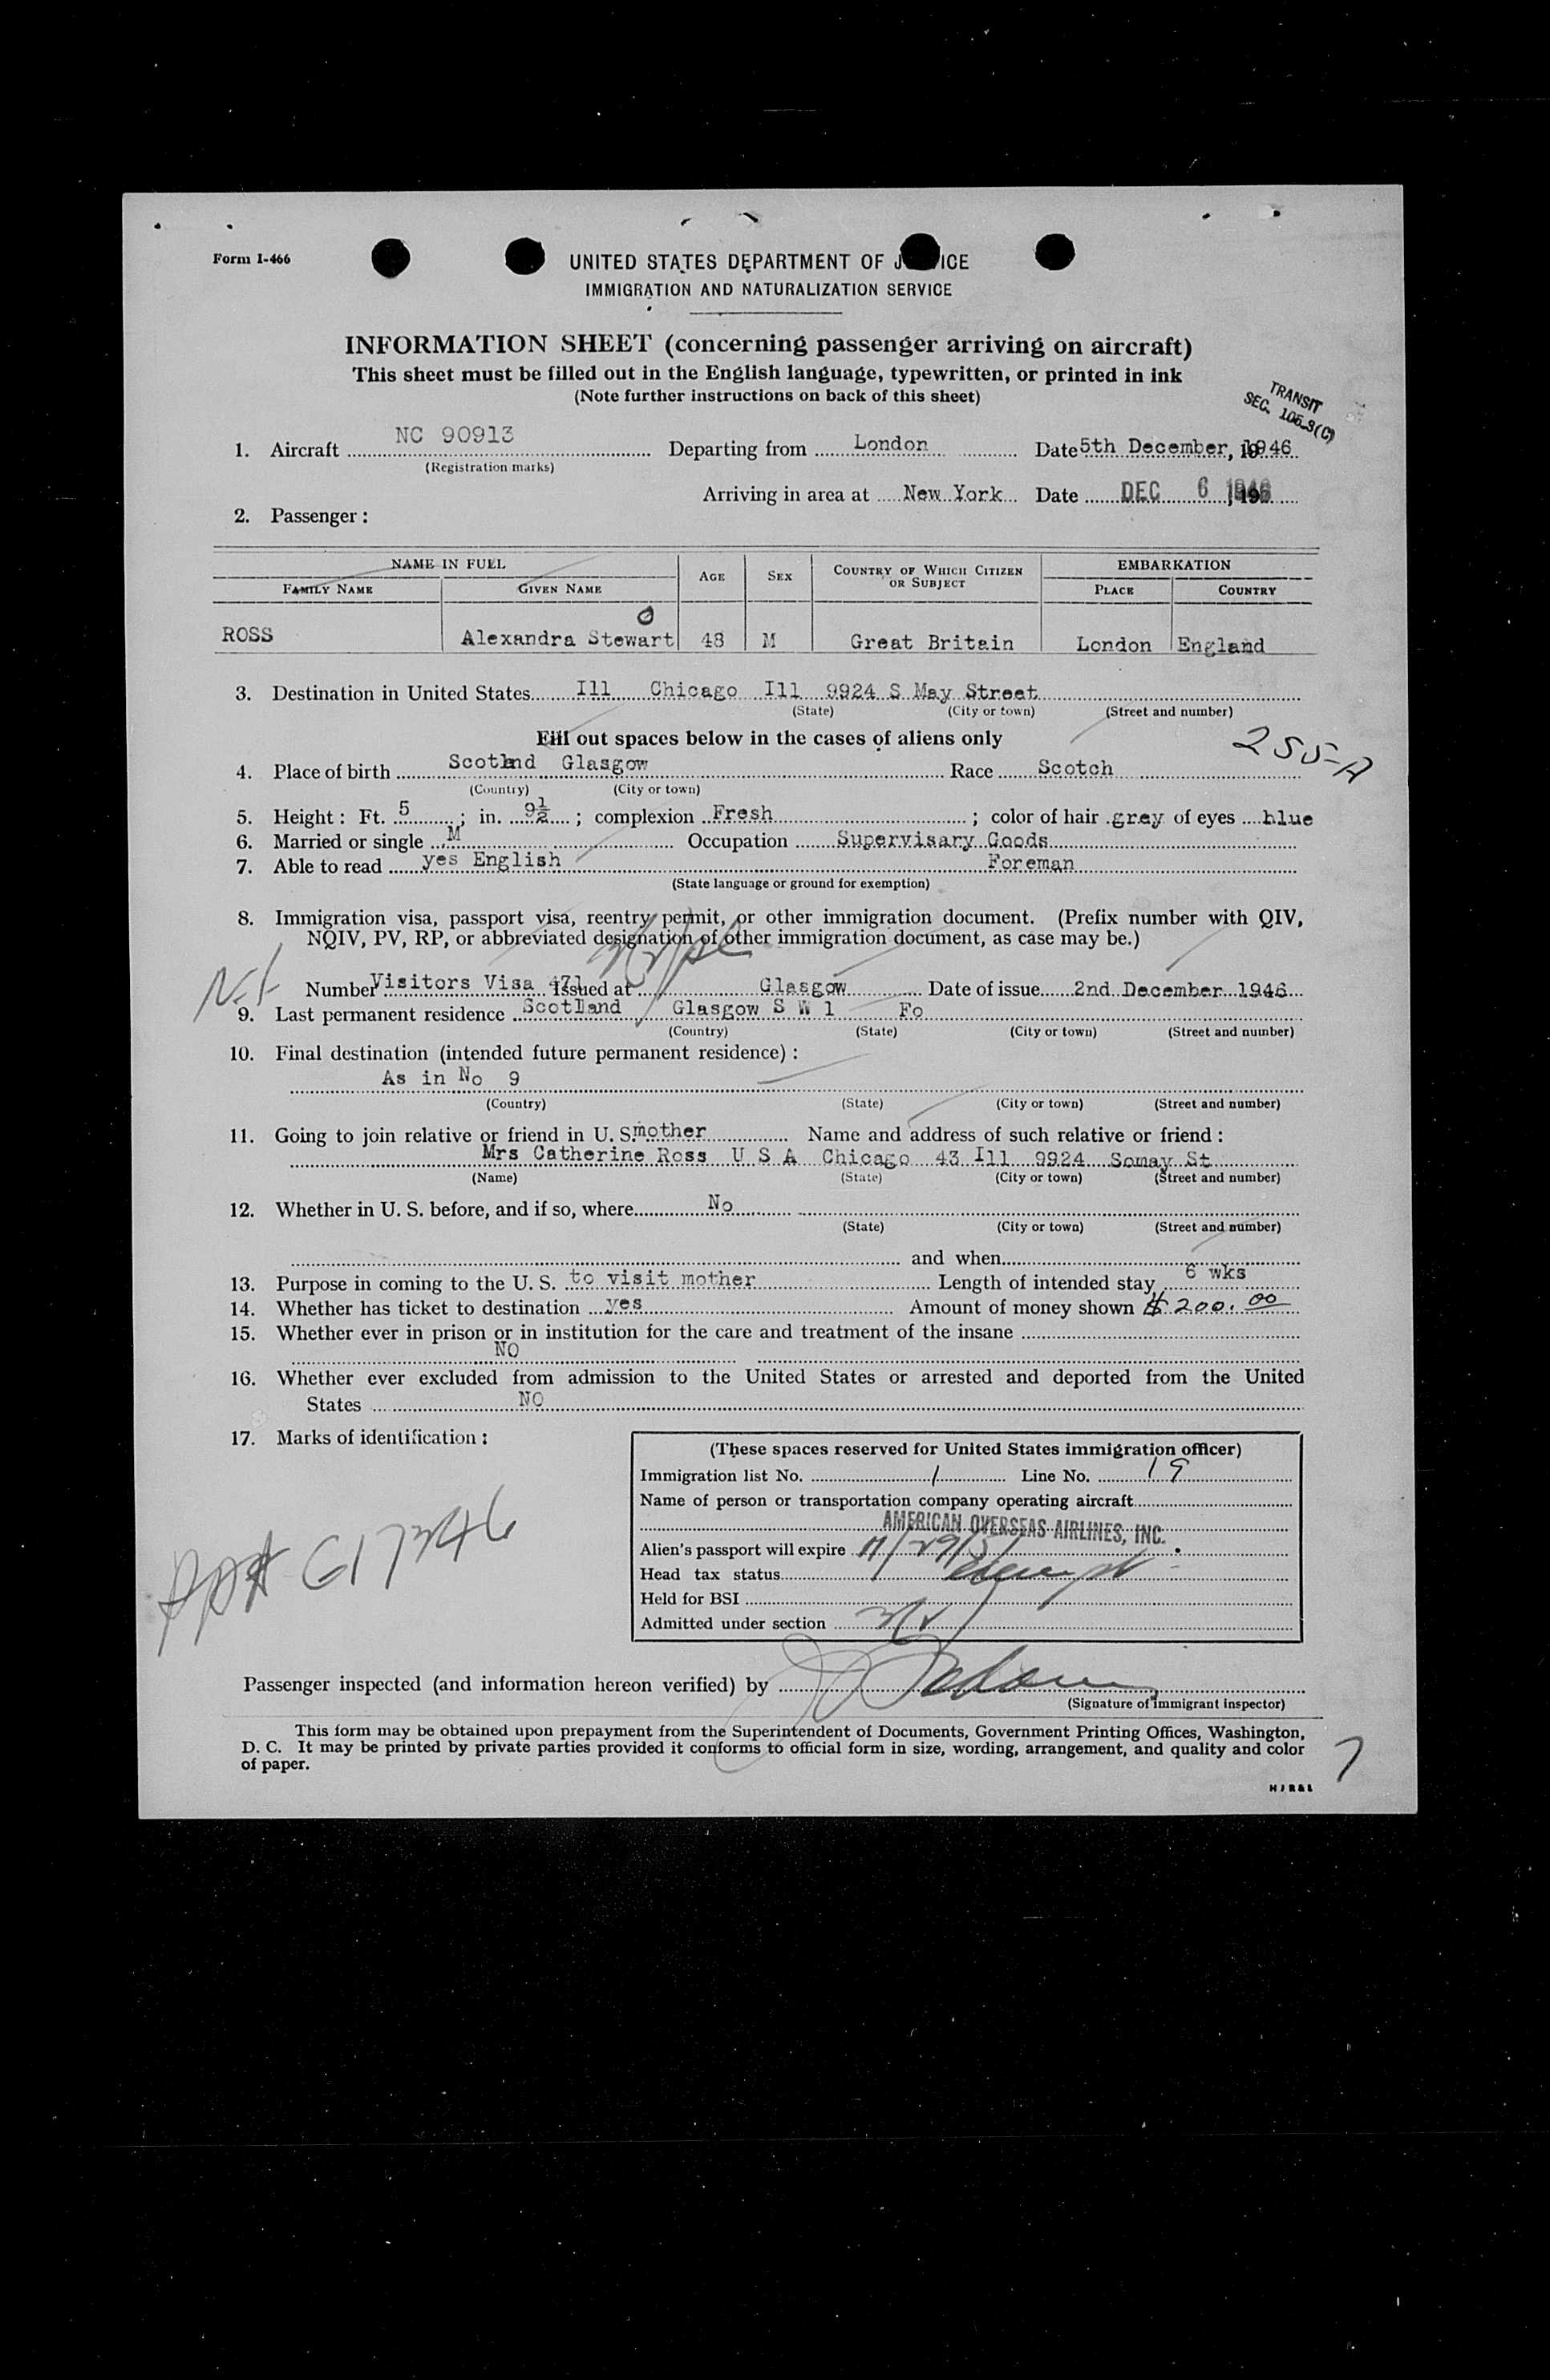 Form I-466
UNITED STATES DEPARTMENT OF J ICE
IMMIGRATION AND NATURALIZATION SERVICE
INFORMATION SHEET (concerning passenger arriving on aircraft)
This sheet must be filled out in the English language, typewritten, or printed in ink
(Note further instructions on back of this sheet)
TRANSIT
SEC. 105.3(C)
1. Aircraft NC 90913 Departing from London Date 5th December, 1946
(Registration marks)
Arriving in area at New York Date DEC 6 1946
2. Passenger:
NAME IN FULL AGE SEX COUNTRY OF WHICH CITIZEN OR SUBJECT EMBARKATION
FAMILY NAME GIVEN NAME PLACE COUNTRY
ROSS Alexandra Stewart 48 M Great Britain London England
3. Destination in United States Ill Chicago Ill 9924 S May Street
(State) (City or town) (Street and number)
Fill out spaces below in the cases of aliens only
255-A
4. Place of birth Scotland Glasgow Race Scotch
(Country) (City or town)
5. Height: Ft. 5; in. 9½; complexion Fresh; color of hair grey of eyes blue
6. Married or single M Occupation Supervisary Goods
7. Able to read yes English Foreman
(State language or ground for exemption)
8. Immigration visa, passport visa, reentry permit, or other immigration document. (Prefix number with QIV,
NQIV, PV, RP, or abbreviated designation of other immigration document, as case may be.)
Number Visitors Visa 471 Issued at Glasgow Date of issue 2nd December 1946
9. Last permanent residence Scotland Glasgow S W 1 Fo
(Country) (State) (City or town) (Street and number)
10. Final destination (intended future permanent residence):
As in No 9
(Country) (State) (City or town) (Street and number)
11. Going to join relative or friend in U. S. mother Name and address of such relative or friend:
Mrs Catherine Ross U S A Chicago 43 Ill 9924 Somay St
(Name) (State) (City or town) (Street and number)
12. Whether in U. S. before, and if so, where No
(State) (City or town) (Street and number)
and when
13. Purpose in coming to the U. S. to visit mother Length of intended stay 6 wks
14. Whether has ticket to destination yes Amount of money shown $200.00
15. Whether ever in prison or in institution for the care and treatment of the insane
NO
16. Whether ever excluded from admission to the United States or arrested and deported from the United
States NO
17. Marks of identification:
(These spaces reserved for United States immigration officer)
Immigration list No. 1 Line No. 19
Name of person or transportation company operating aircraft
AMERICAN OVERSEAS AIRLINES, INC.
Alien's passport will expire 11/29/51
Head tax status exempt
Held for BSI
Admitted under section 3(2)
PPt# G17346
Passenger inspected (and information hereon verified) by
(Signature of immigrant inspector)
This form may be obtained upon prepayment from the Superintendent of Documents, Government Printing Offices, Washington,
D. C. It may be printed by private parties provided it conforms to official form in size, wording, arrangement, and quality and color
of paper.
7
H J R & L